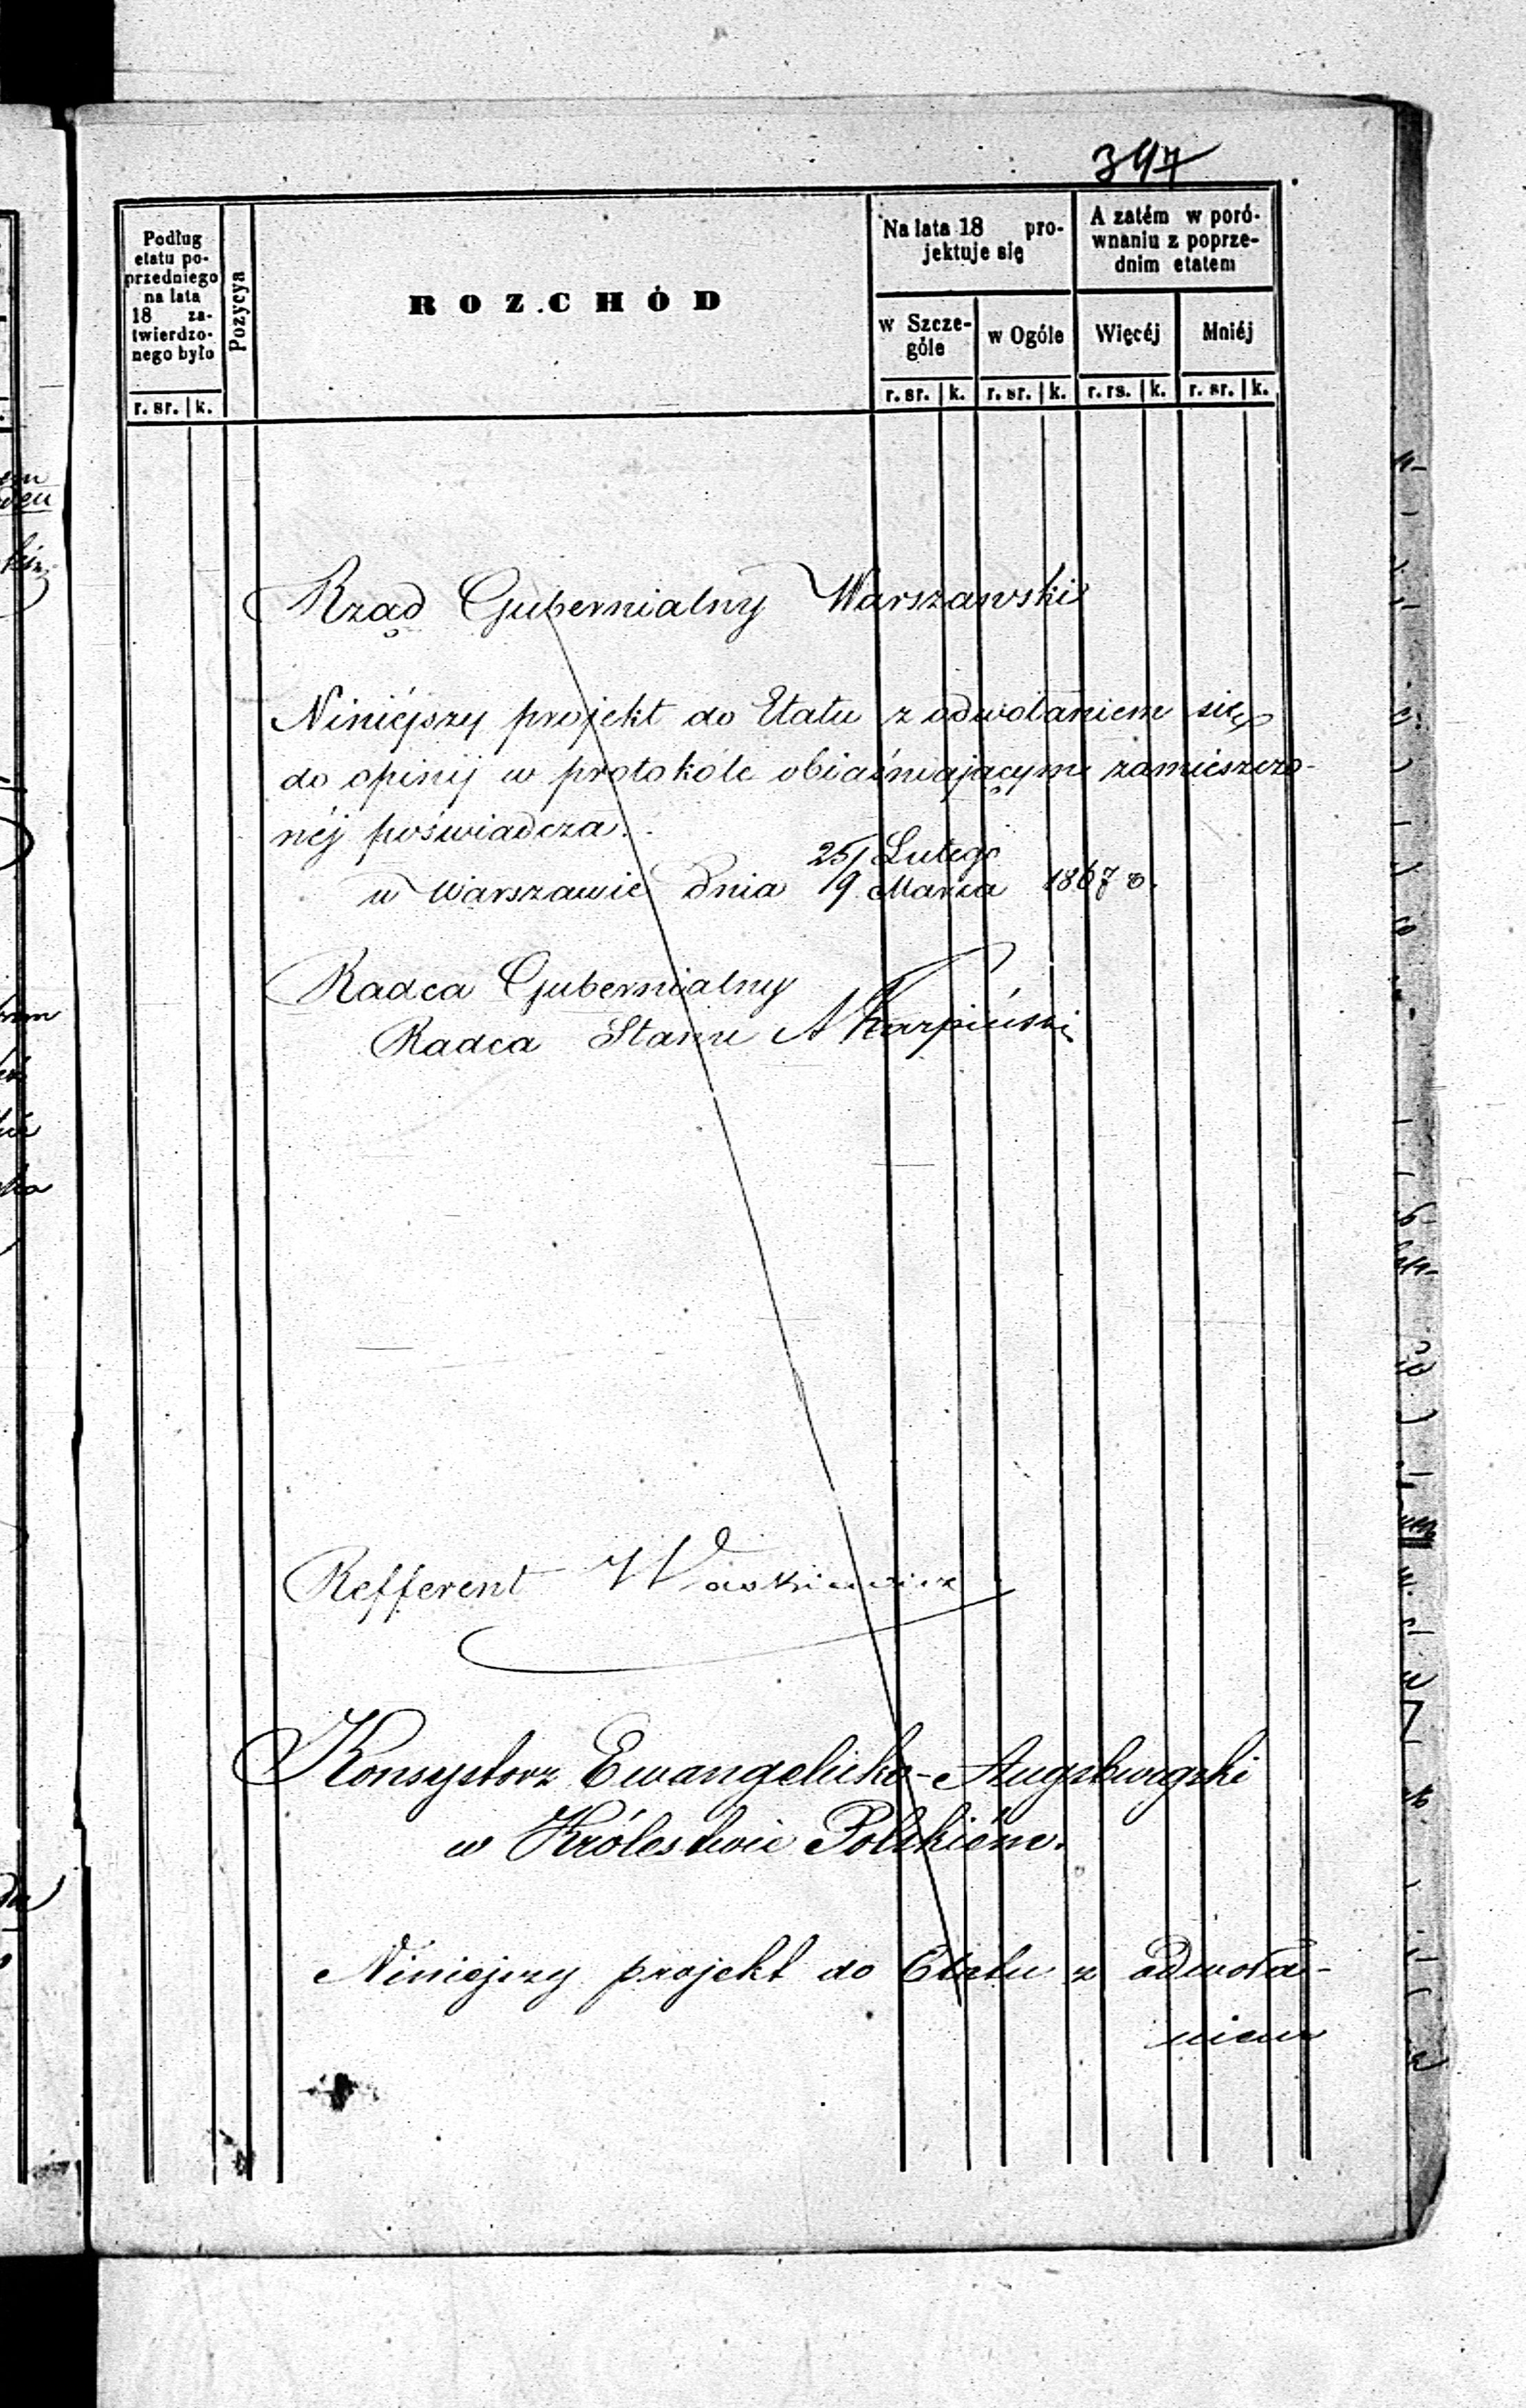 397
Podług
etatu po-
przedniego
na lata
18 za-
twierdzo-
nego było
r. sr. k.
Pozycya
ROZCHÓD
Na lata 18 pro-
jektuje się
w Szcze-
góle
r. sr. k.
w Ogóle
r. sr. k.
A zatém w poró-
wnaniu z poprze-
dnim etatem
Więcéj
r. rs. k.
Mniéj
r. sr. k.
Rząd Gubernialny Warszawski
Niniéjszy projekt do Etatu z odwołaniem się
do opinij w protokóle obiaśniającym zamieszczo-
néj poświadcza.
w Warszawie dnia 25/9 Lutego/Marca 1867 r.
Radca Gubernialny
Radca Stanu A Karpiński
Refferent Waskiewicz
Konsystorz Ewangelicko-Augsburgski
w Królestwie Polskiém.
Niniejszy projekt do Etatu z odwoła-
niem